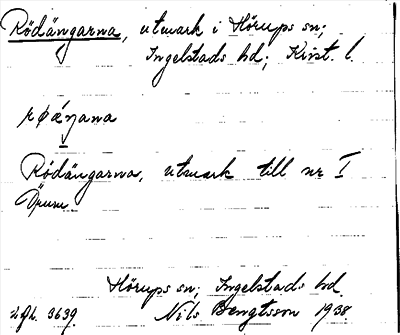 Rödängarna, utmark i Hörups sn;
Ingelstads hd; Krist. l.
røǽŋana
Rödängarna, utmark till nr I
Örum
Hörups sn; Ingelstads hd.
3639. Nils Bengtsson 1938.